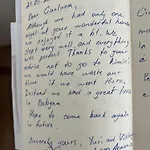 Dear Gianluca,
Although we had only one
night at your wonderful house
we enjoyed it a lot. We
slept very well and everything
was perfect. Thanks to your
advice not do go to Rimini:
we would have waste our
time if we went there.
Instead we had a great time
in Bologna
Hope to come back again
in future
Sincerely yours, Yurii and